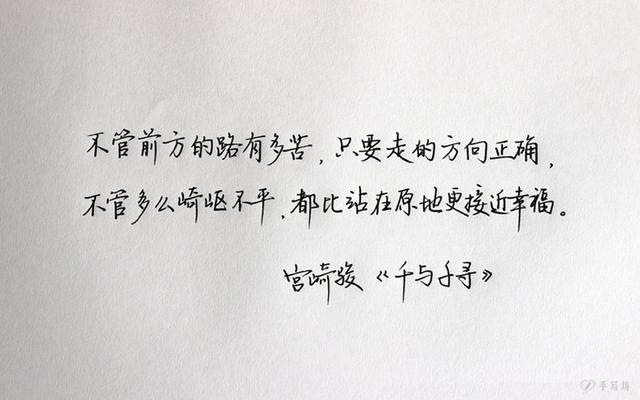 不管前方的路有多苦，只要走的方向正确，
不管多么崎岖不平，都比站在原地更接近幸福。
宫崎骏《千与千寻》
手写馆